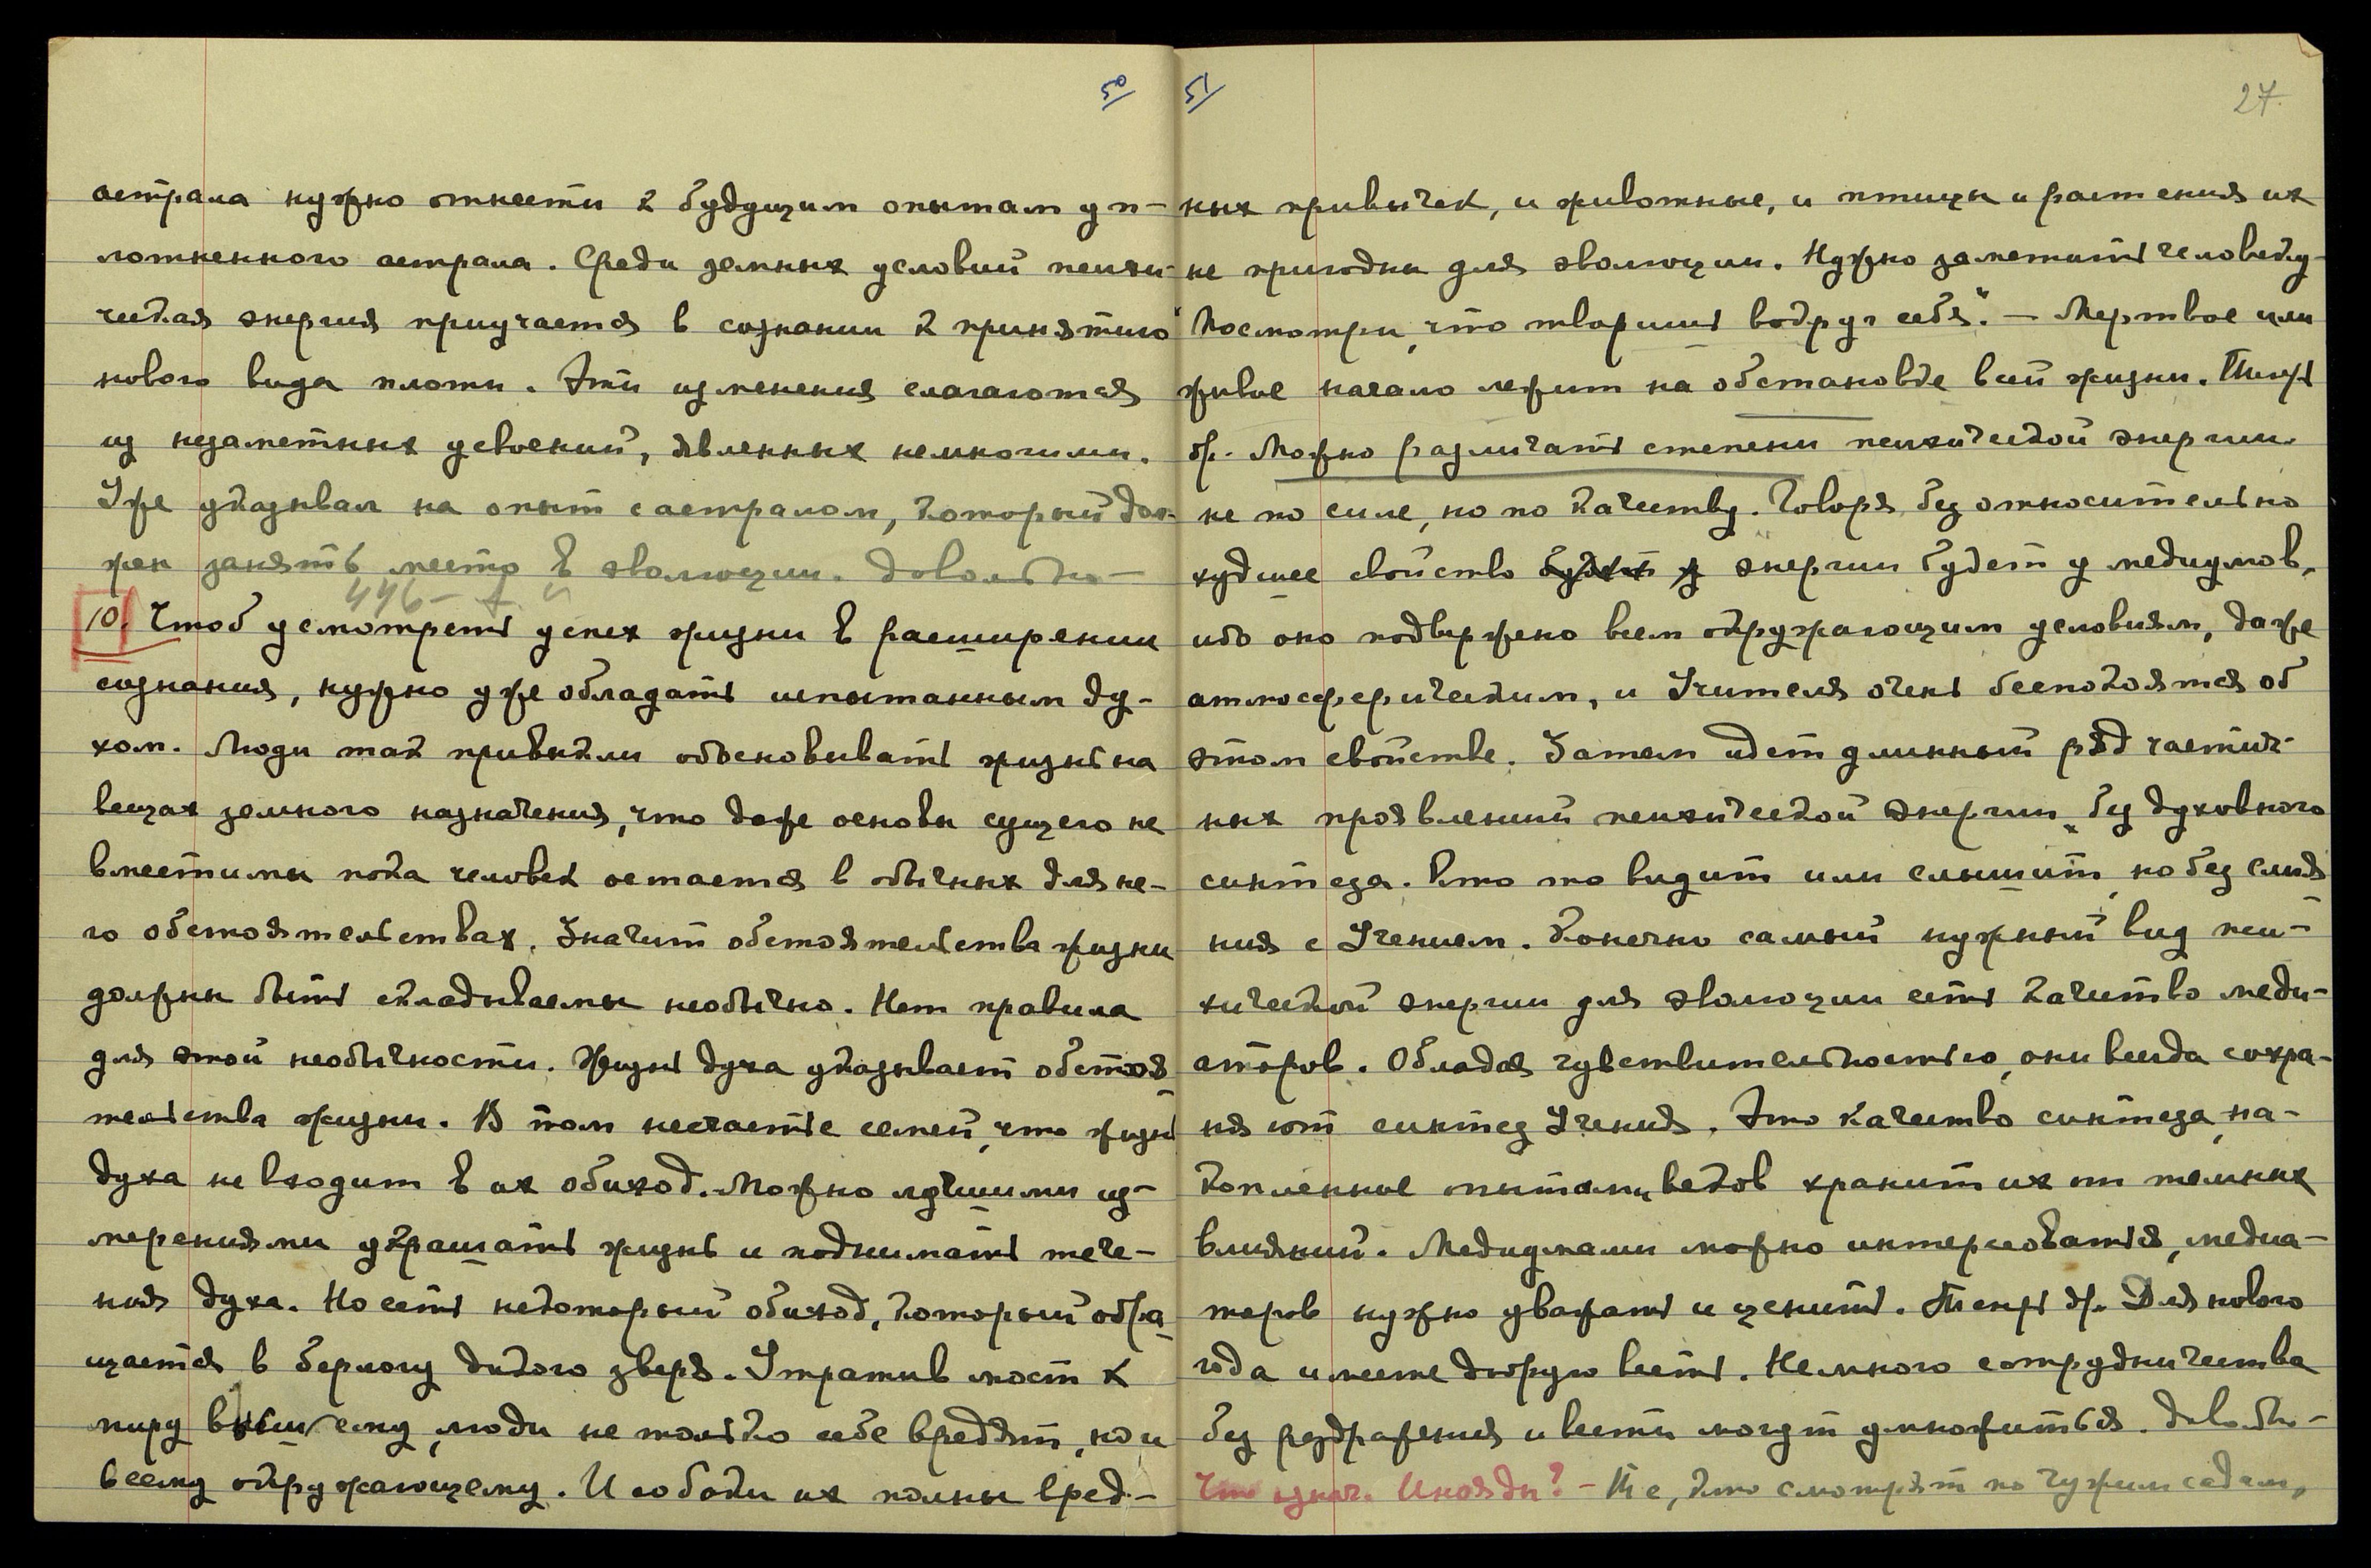 50
астрала нужно отнести к будущим опытам уп-
лотненного астрала. Среди земных условий психи-
ческая энергия приучается в сознании к принятию
нового вида плоти. Эти изменения слагаются
из незаметных усвоений, явленных немногими.
Уже указывал на опыт с астралом, который дол-
жен занять место в эволюции. Довольно —
10. Чтоб усмотреть успех жизни в расширении
сознания, нужно уже обладать испытанным ду-
хом. Люди так привыкли обосновывать жизнь на
вещах земного назначения, что даже основы сущего не
вместимы пока человек остается в обычных для не-
го обстоятельствах. Значит обстоятельства жизни
должны быть складываемы необычно. Нет правила
для этой необычности. Жизнь духа указывает обстоя
тельства жизни. В том несчастье семей, что жизнь
духа не входит в их обиход. Можно лучшими из-
мерениями украшать жизнь и поднимать тече-
ния духа. Но есть некоторый обиход, который обра
щается в берлогу дикого зверя. Утратив мост к
миру высшему, люди не только себе вредят, но и
всему окружающему. И собаки их полны вред-
51
27.
ных привычек, и животные, и птицы и растения их
не пригодны для эволюции. Нужно заметить человеку
"Посмотри, что творишь вокруг себя". — Мертвое или
живое начало лежит на обстановке всей жизни. Теперь
др. Можно различать степени психической энергии
не по силе, но по качеству. Говоря безотносительно
худшее свойство энергии будет у медиумов,
ибо оно подвержено всем окружающим условиям, даже
атмосферическим, и Учителя очень беспокоятся об
этом свойстве. Затем идет длинный ряд частич-
ных проявлений психической энергии без духовного
синтеза. Кто то видит или слышит, но без слия
ния с Учением. Конечно самый нужный вид пси-
хической энергии для эволюции есть качество меди-
аторов. Обладая чувствительностью, они всегда сохра-
няют синтез Учения. Это качество синтеза, на-
копленное опытами веков хранит их от темных
влияний. Медиумами можно интересоваться, медиа-
торов нужно уважать и ценить. Теперь др. Для нового
года имеете добрую весть. Немного сотрудничества
без раздражения и вести могут умножиться. Довольно —
Что означ. Инояды? — Те, кто смотрят по чужим садам,